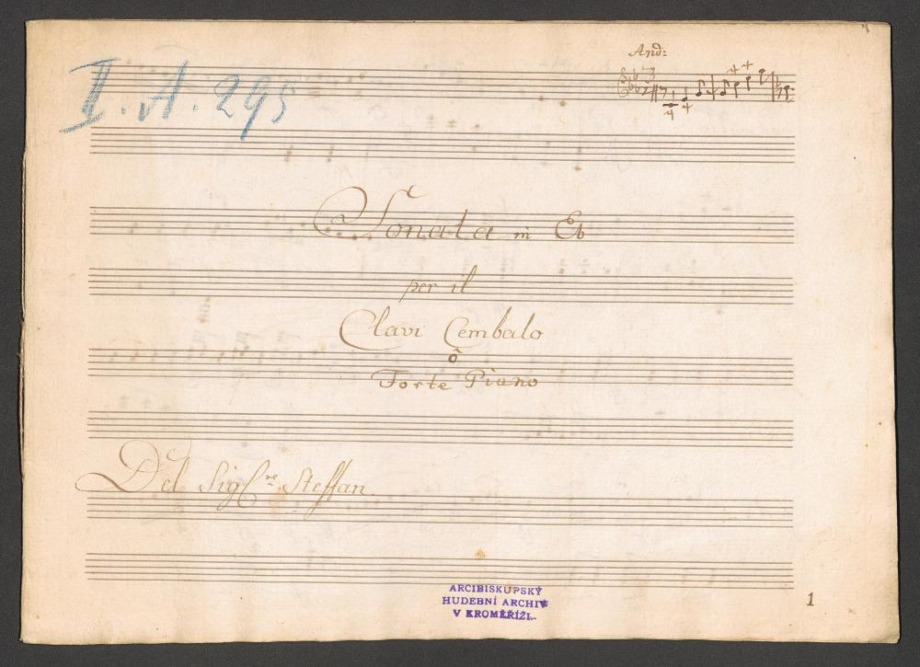 And:
II. A. 295
Sonata in Eb
per il
Clavi Cembalo
ô
Forte Piano
Del Sig:re Steffan.
ARCIBISKUPSKÝ
HUDEBNÍ ARCHIV
V KROMĚŘÍŽI.
1